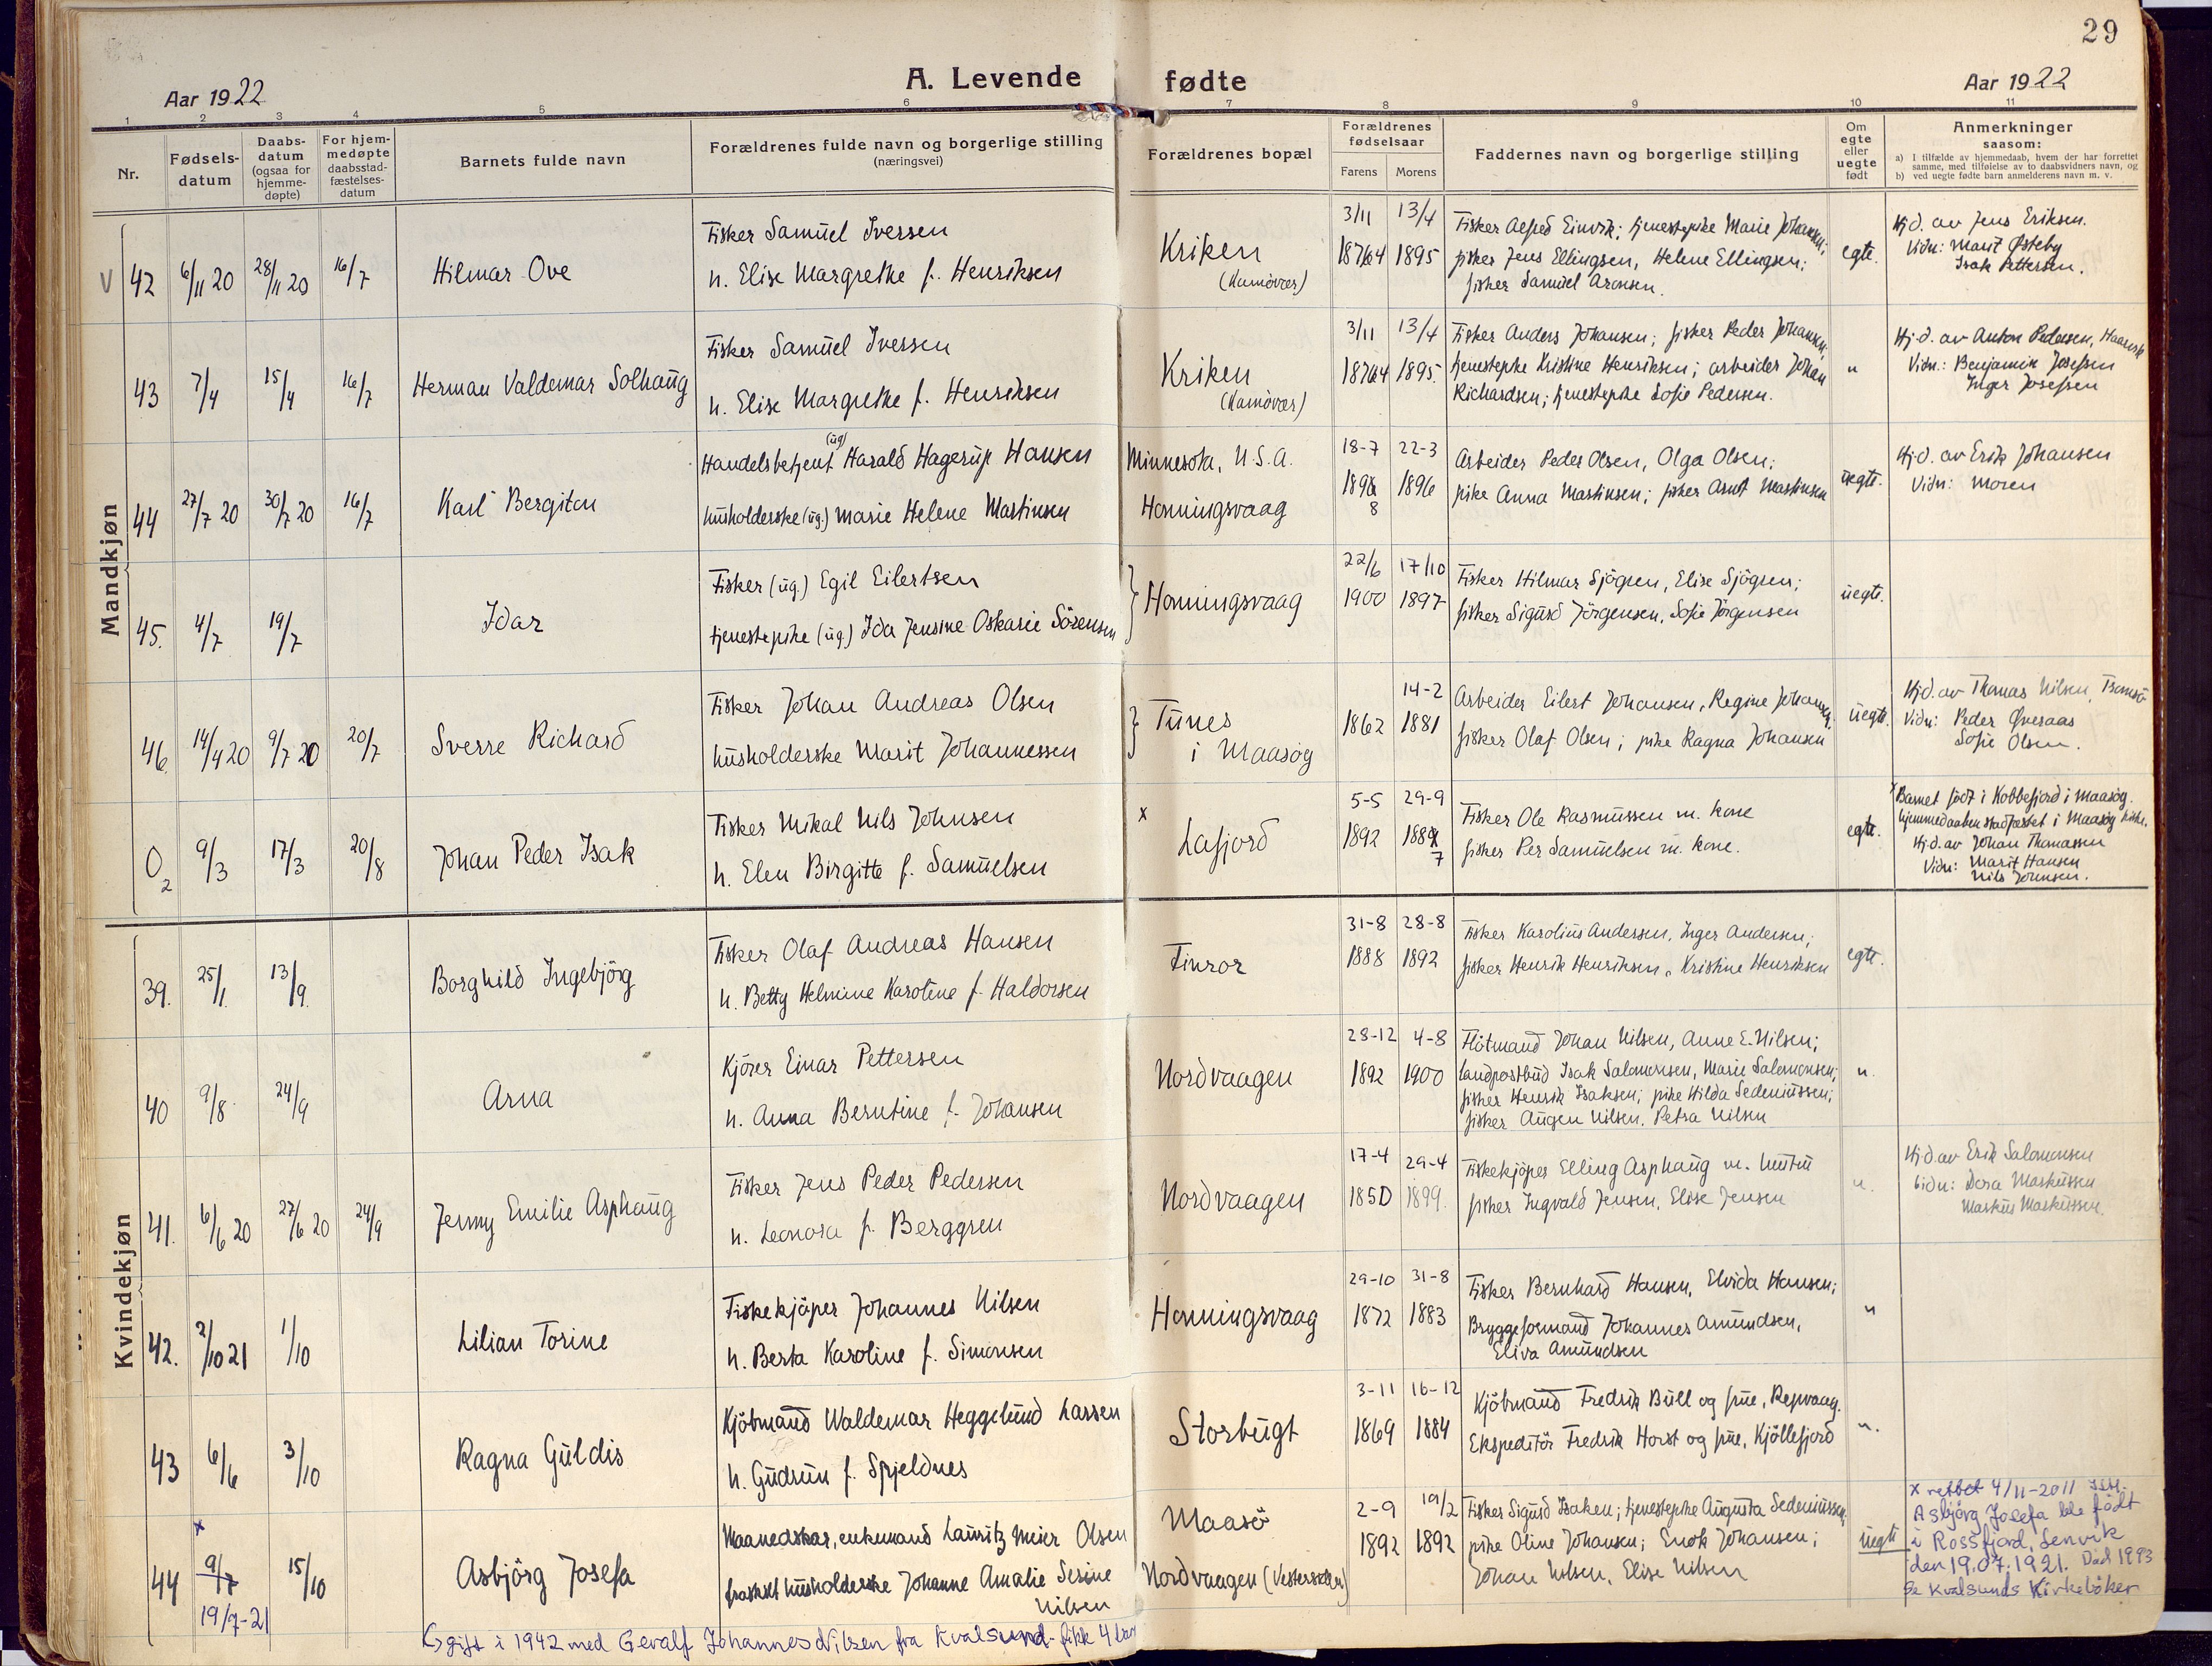 29
A. Levende fødte
Aar 1922
Aar 1922
1 2 3 4 5 6 7 8 9 10 11
Nr.
Fødsels-
datum
Daabs-
datum
(ogsaa for
hjemme-
døpte)
For hjem-
medøpte
daabsstad-
fæstelses-
datum
Barnets fulde navn
Forældrenes fulde navn og borgerlige stilling
(næringsvei)
Forældrenes bopæl
Forældrenes
fødselsaar
Farens Morens
Faddernes navn og borgerlige stilling
Om
egte
eller
uegte
født
Anmerkninger
saasom:
a) I tilfælde av hjemmedaab, hvem der har forrettet
samme, med tilføielse av to daabsvidners navn, og
b) ved uegte fødte barn anmelderens navn m. v.
Mandkjøn
V 42 6/11 20 28/11 20 16/7 Hilmar Ove
Fisker Samuel Iversen
h. Elise Margrethe f. Henriksen
Kriken
(Kamøvær)
3/11 13/4
1864 1895
Fisker Alfred Einvik; tjenestepike Marie Johansen;
fisker Jens Ellingsen, Helene Ellingsen;
fisker Samuel Aronsen.
egte.
Hj.d. av Jens Eriksen.
Vidn: Marit Østeby
Isak Pettersen.
43 7/4 15/4 16/7 Herman Valdemar Solhaug
Fisker Samuel Iversen
h. Elise Margrethe f. Henriksen
Kriken
(Kamøvær)
3/11 13/4
1864 1895.
Fisker Anders Johansen; fisker Peder Johansen,
tjenestepike Kristine Henriksen; arbeider Johan
Richardsen; tjenestepike Sofie Pedersen.
"
Hj.d. av Anton Pedersen,
Vidn.: Benjamin Josefsen
Inger Josefsen
44 27/7 20 30/7 20 16/7 Karl Bergiton
Handelsbetjent (ug) Harald Hagerup Hansen
husholderske (ug.) Marie Helene Martinsen
Minnesota, U.S.A.
Honningsvaag
18-7 22-3
1898 1896
Arbeider Peder Olsen, Olga Olsen;
pike Anna Martinsen; fisker Arnt Martinsen
uegte.
Hj.d. av Erik Johansen
Vidn: Moren
45. 4/7 19/7 Idar
Fisker (ug.) Egil Eilertsen
tjenestepike (ug.) Ida Jensine Oskarie Sörensen
Honningsvaag
22/6 17/10
1900 1897
Fisker Hilmar Sjögren, Elise Sjögren;
fisker Sigurd Jörgensen, Sofie Jörgensen
uegte.
46. 14/4 20 9/7 20 20/7 Sverre Richard
Fisker Johan Andreas Olsen
husholderske Marit Johannessen
Tunes
i Maasøy
14-2
1862 1881
Arbeider Eilert Johansen, Regine Johansen,
fisker Olaf Olsen; pike Ragna Johansen
uegte.
Hj.d. av Thomas Nilsen,
Vidn: Peder Øveraas
Sofie Olsen.
O2 9/3 17/3 20/8 Johan Peder Isak
Fisker Mikal Nils Johnsen
h. Elen Birgitte f. Samuelsen
x
Lafjord
5-5 29-9
1892 1887
Fisker Ole Rasmussen m. kone
fisker Per Samuelsen m. kone.
egte.
x Barnet født i Kobbefjord i Maasøy.
hjemmedaaben stadfæstet i Maasøy kirke.
Hj.d. av Johan Thomassen
Vidn: Marit Hansen
Nils Johnsen.
Kvindekjøn
39. 25/1 13/9. Borghild Ingebjörg
Fisker Olaf Andreas Hansen
h. Betty Helmine Karoline f. Haldorsen
Finvor
31-8 28-8
1888 1892
Fisker Karolius Andersen, Inger Andersen;
fisker Henrik Henriksen, Kristine Henriksen
egte.
40 9/8 24/9 Arna
Kjörer Einar Pettersen
h. Anna Berntine f. Johansen
Nordvaagen
28-12 4-8
1892 1900
Flötmand Johan Nilsen, Anne E. Nilsen;
landpostbud Isak Salomonsen, Marie Salomonsen;
fisker Henrik Isaksen; pike Hilda Sedeniussen;
fisker Augen Nilsen, Petra Nilsen
"
41. 6/6 20 27/6 20 24/9 Jenny Emilie Asphaug
Fisker Jens Peder Pedersen
h. Leonora f. Berggren
Nordvaagen
17-4 29-4
1850 1899.
Fiskekjöper Elling Asphaug m. hustru
fisker Ingvald Jensen, Elise Jensen
"
Hj.d. av Erik Salomonsen
Vidn: Dora Markussen
Markus Markussen.
42. 2/10 21 1/10 Lilian Torine
Fiskekjöper Johannes Nilsen
h. Berta Karoline f. Simonsen
Honningsvaag
29-10 31-8
1872 1883
Fisker Bernhard Hansen, Elvida Hansen;
Bryggeformand Johannes Amundsen,
Eliva Amundsen
"
43 6/6 3/10 Ragna Guldis
Kjöbmand Waldemar Heggelund Larssen
h. Gudrun f. Spjeldnes
Storbugt
3-11 16-12
1869 1884
Kjöbmand Fredrik Bull og frue, Repvaag.
Ekspeditör Fredrik Horst og frue, Kjöllefjord
"
44 x 9/7 15/10 Asbjörg Josefa
19/7-21
Maanedskar, enkemand Lauritz Meier Olsen
fraskilt husholderske Johanne Amalie Serine
Nilsen
Maasö
Nordvaagen
2-9 19/2
1892 1892
Fisker Sigurd Isaksen; tjenestepike Augusta Sedeniussen,
pike Oline Johansen; Enok Johansen;
Johan Nilsen, Elise Nilsen
uegte
x rettet 4/11-2011
Asbjörg Josefa ble født
i Rossfjord, Lenvik
den 19.07.1921. Død 1993
Se Kvalsunds Kirkebøker
gift i 1942 med Geralf Johannes Nilsen fra Kvalsund - fikk 4 barn